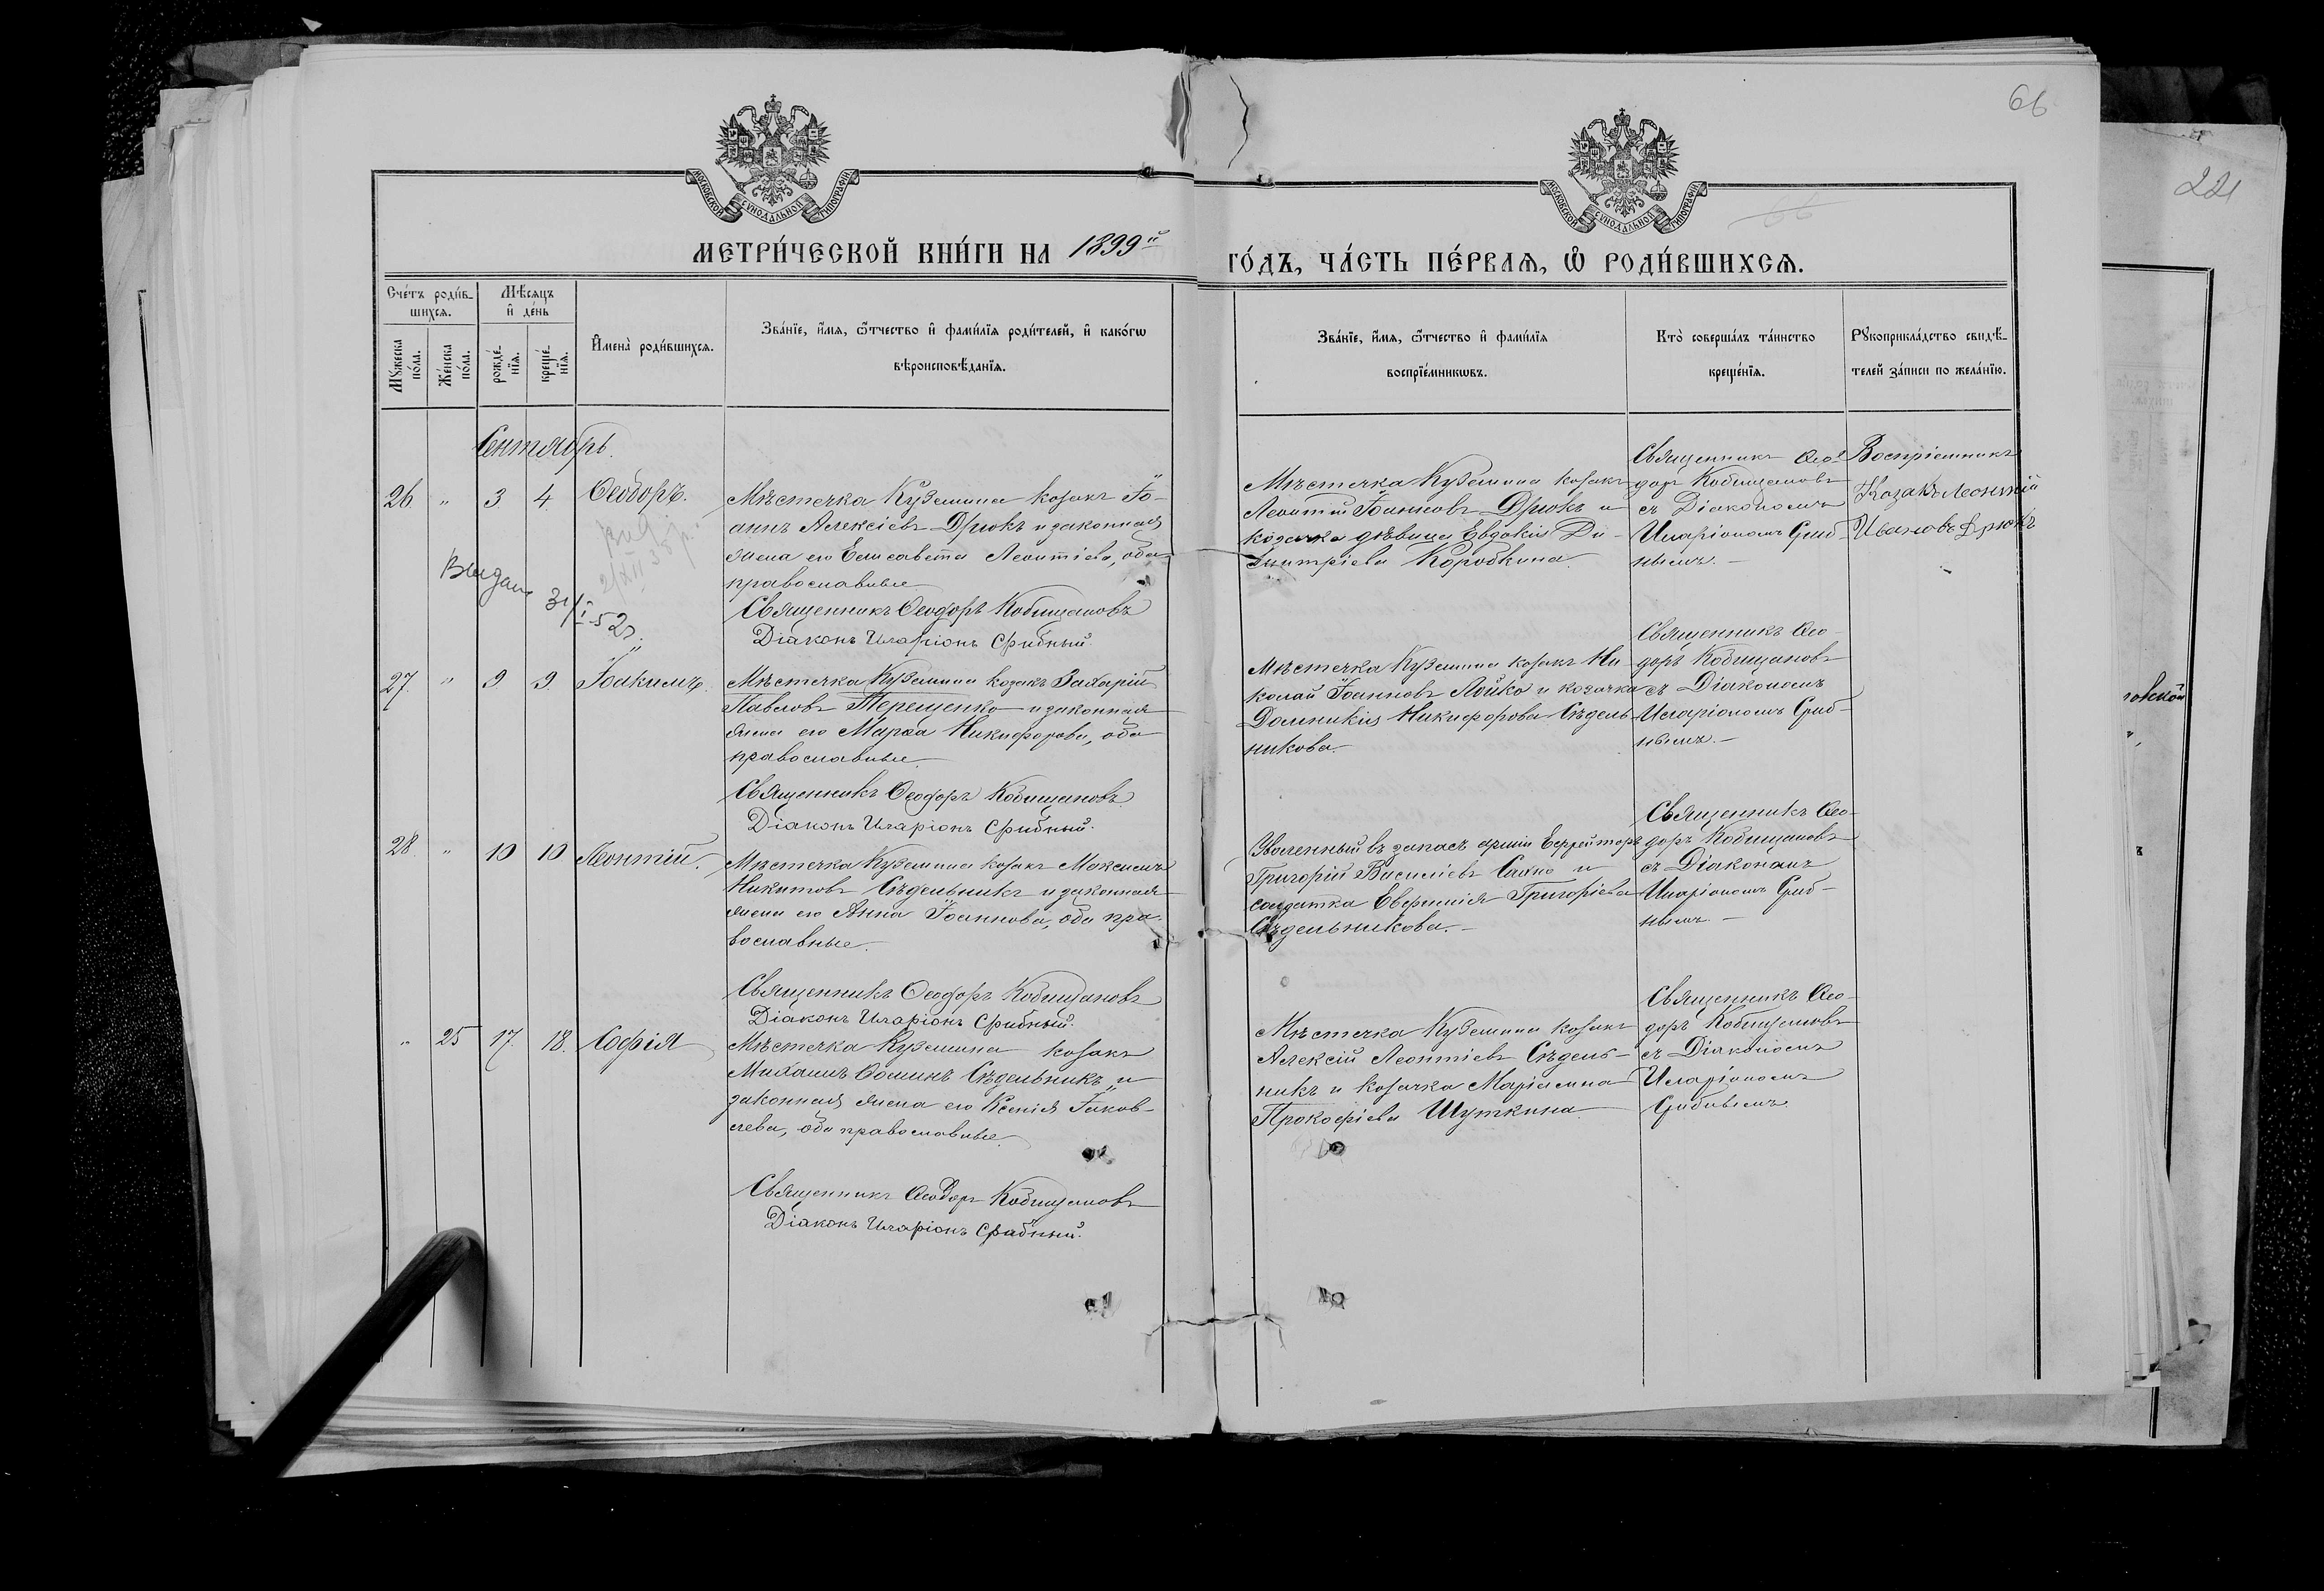 66
221
МОСКОВСКОЙ СУНОДАЛЬНОЙ ТИПОГРАФІИ
МОСКОВСКОЙ СУНОДАЛЬНОЙ ТИПОГРАФІИ
66
МЕТРИ́ЧЕСКОЙ КНИ́ГИ НА 1899й
ГО́ДЪ, ЧА́СТЬ ПЕ́РВАѦ, Ѡ РОДИ́ВШИХСѦ.
Сче́тъ роди́в-
шихсѧ.
Мѣ́сѧцъ
и҆ де́нь
Мꙋ́жеска
по́ла.
Же́нска
по́ла.
рожде́-
нїѧ.
креще́-
нїѧ.
И҆мена̀ роди́вшихсѧ.
Зва́нїе, и҆́мѧ, ѻ҆́тчество и҆ фами́лїѧ роди́телей, и҆ како́гѡ
вѣроисповѣ́данїѧ.
Зва́нїе, и҆́мѧ, ѻ҆́тчество и҆ фами́лїѧ
воспрїе́мникѡвъ.
Кто̀ соверша́лъ та́инство
креще́нїѧ.
Рꙋкоприкла́дство свидѣ́-
телей за́писи по жела́нїю.
Сентябрь.
26. " 3. 4. Ѳеодоръ.
Мѣстечка Куземина козакъ Іо-
аннъ Алексіевъ Дрюкъ и законная
жена его Елисавета Леонтіева, оба
православные
Священникъ Ѳеодоръ Кобищановъ
Діаконъ Иларіонъ Срибный.
Мѣстечка Куземина козакъ
Леонтій Іоанновъ Дрюкъ и
козачка дѣвица Евдокія Ди-
митріева Коробкина.
Священникъ Ѳео-
доръ Кобищановъ
съ Діакономъ
Иларіономъ Сриб-
нымъ.
Воспріемникъ
Козакъ Леонтій
Ивановъ Дрюкъ
2/XII 35 р.
Выдано 31/I-52г.
27. " 9. 9. Іоакимъ.
Мѣстечка Куземина козакъ Захарій
Павловъ Терещенко и законная
жена его Марѳа Никифорова, оба
православные.
Священникъ Ѳеодоръ Кобищановъ.
Діаконъ Иларіонъ Срибный.
Мѣстечка Куземина козакъ Ни-
колай Іоанновъ Лойко и козачка
Домникія Никифорова Сѣдель-
никова.
Священникъ Ѳео-
доръ Кобищановъ
съ Діакономъ
Иларіономъ Сриб-
нымъ.
28. " 10 10 Леонтій.
Мѣстечка Куземина козакъ Максимъ
Никитовъ Сѣдельникъ и законная
жена его Анна Іоаннова, оба пра-
вославные.
Священникъ Ѳеодоръ Кобищановъ
Діаконъ Иларіонъ Срибный.
Уволенный въ запасъ арміи Ефрейторъ
Григорій Василіевъ Сахно и
солдатка Евфимія Григоріева
Сѣдельникова.
Священникъ Ѳео-
доръ Кобищановъ
съ Діакономъ
Иларіономъ Сриб-
нымъ.
" 25 17. 18. Софія
Мѣстечка Куземина козакъ
Михаилъ Ѳоминъ Сѣдельникъ и
законная жена его Ксенія Іаков-
лева, оба православные.
Священникъ Ѳеодоръ Кобищановъ
Діаконъ Иларіонъ Срибный.
Мѣстечка Куземина козакъ
Алексій Леонтіевъ Сѣдель-
никъ и козачка Маріамна
Прокофіева Шуткина.
Священникъ Ѳео-
доръ Кобищановъ
съ Діакономъ
Иларіономъ
Срибнымъ.